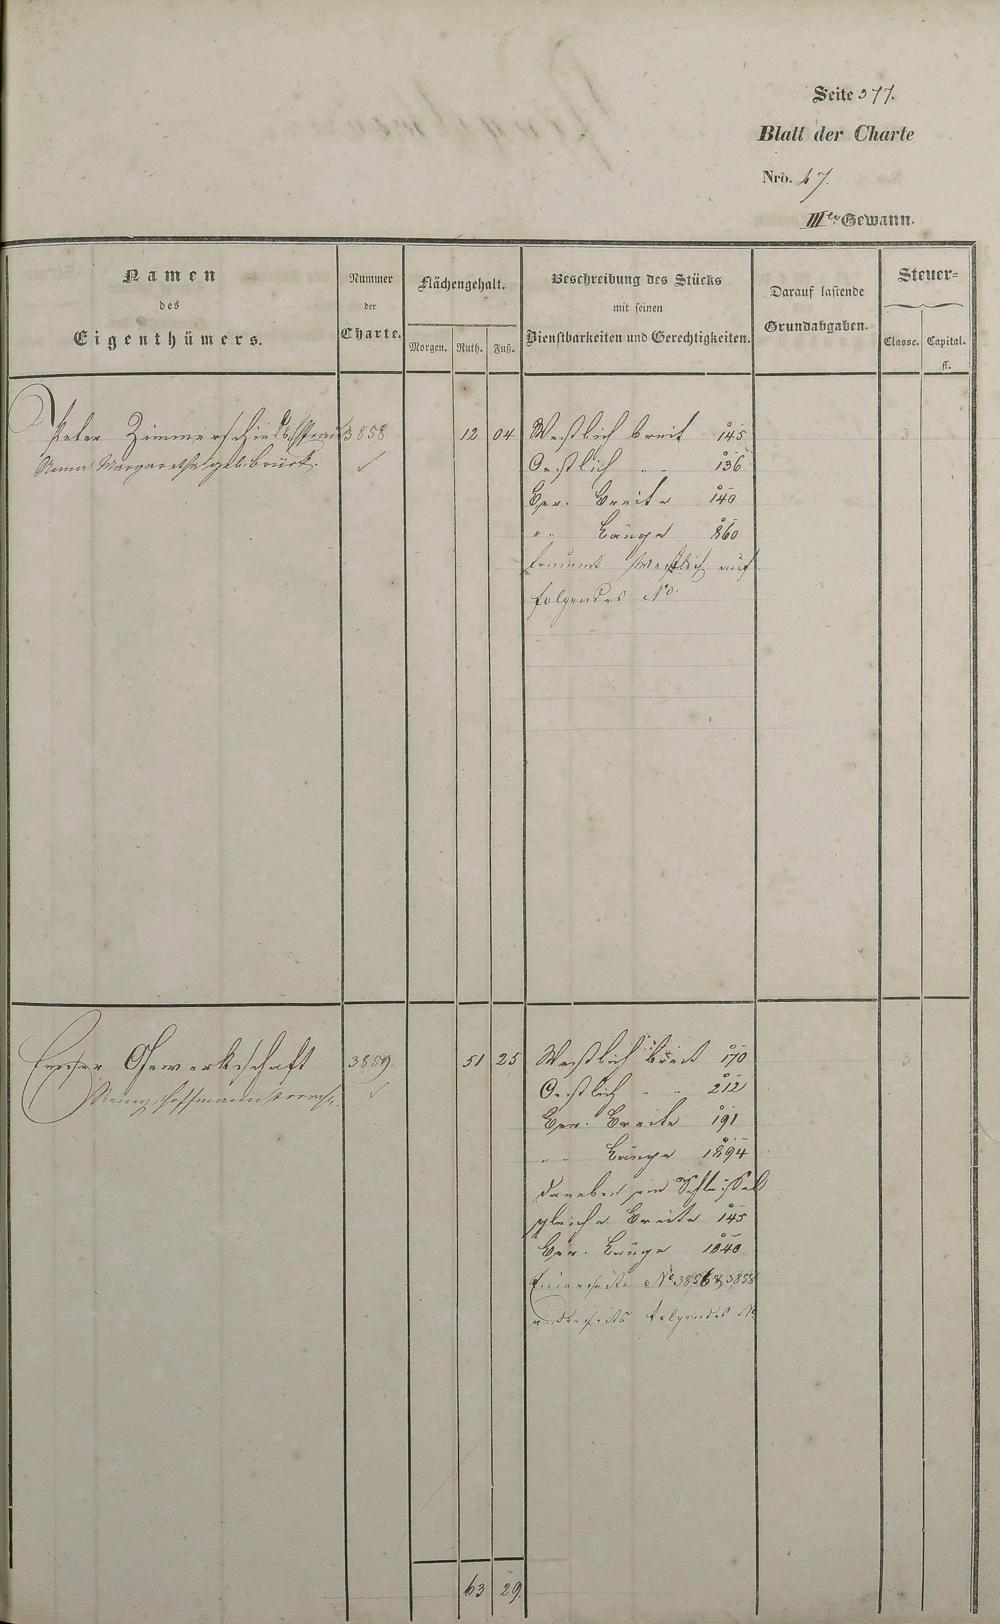 Seite 377.
Blatt der Charte
Nro. 47.
III te Gewann.
Namen
des
Eigenthümers.
Nummer
der
Charte.
Flächengehalt.
Morgen. Ruth. Fuß.
Beschreibung des Stücks
mit seinen
Dienstbarkeiten und Gerechtigkeiten.
Darauf lastende
Grundabgaben.
Steuer=
Classe. Capital.
fl.
Peter Zimmerschied 3858 12 04 Westlich breit 145 3
Anna Margaretha geb. Brück. ✓ Oestlich " " 136
Ger. Breite 140
" " Länge 860
westlich auf
folgendes No.
Emser Gewerkschaft 3859 51 25 Westlich breit 170 3
✓ Oestlich " " 212
Ger. Breite 191
" " Länge 1894
daneben ein Schlüssel
gleiche Breite 145
Ger. Länge 1040
Einerseits No 3856 & 3858
anderseits folgendes No
63 29.